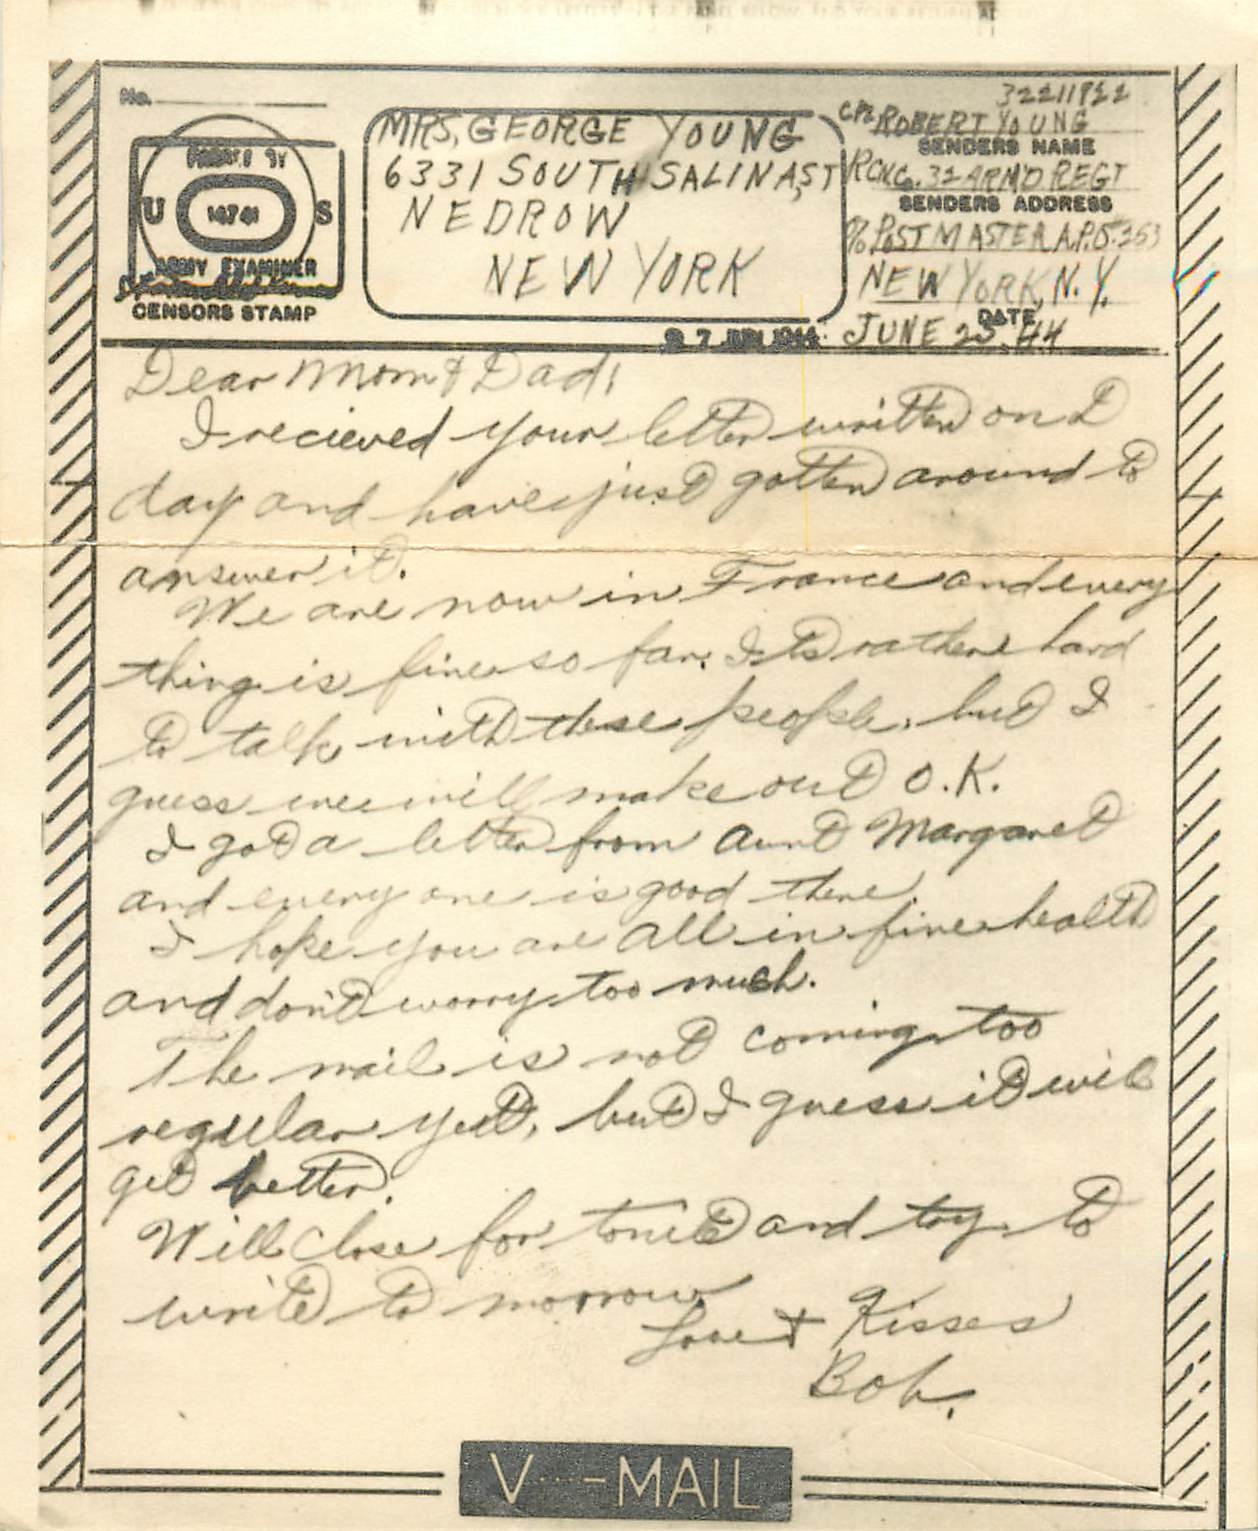 No.
PASSED BY
U S
ARMY EXAMINER
CENSORS STAMP
MRS. GEORGE YOUNG
6331 SOUTH SALINA ST,
NEDROW
NEW YORK
CPL ROBERT YOUNG
SENDERS NAME
32 ARM'D REGT
SENDERS ADDRESS
% POSTMASTER A.P.O. 253
NEW YORK, N.Y.
DATE
JUNE 25, 44
Dear Mom & Dad;
I recieved your letter written on D
day and have just gotten around to
answer it.
We are now in France and every
thing is fine so far. Its rather hard
to talk with these people, but I
guess we will make out O.K.
I got a letter from Aunt Margaret
and every one is good there.
I hope you are all in fine health
and don't worry too much.
The mail is not coming too
regular yet, but I guess it will
get better.
Will close for tonite and try to
write to morrow
Love & Kisses
Bob.
V···–MAIL